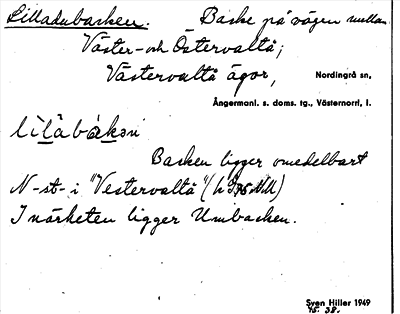 Lilladubacken. Backe på vägen mellan
Väster- och Östervalta;
Västervalta ägor,
Nordingrå sn,
Ångermanl. s. doms. tg., Västernorrl, l.
Backen ligger omedelbart
N-st- i "Vestervalta"
I närheten ligger Umbacken.
Sven Hiller 1949